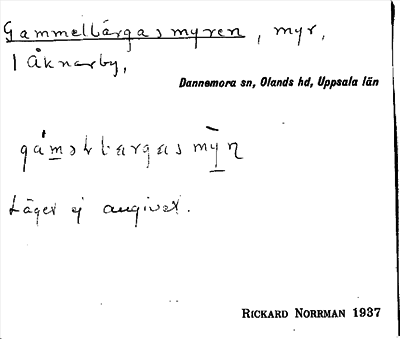 Gammelbärgasmyren, myr,
1 Åknarby,
Dannemora sn, Olands hd, Uppsala län
Läget ej angivet.
RICKARD NORRMAN 1937